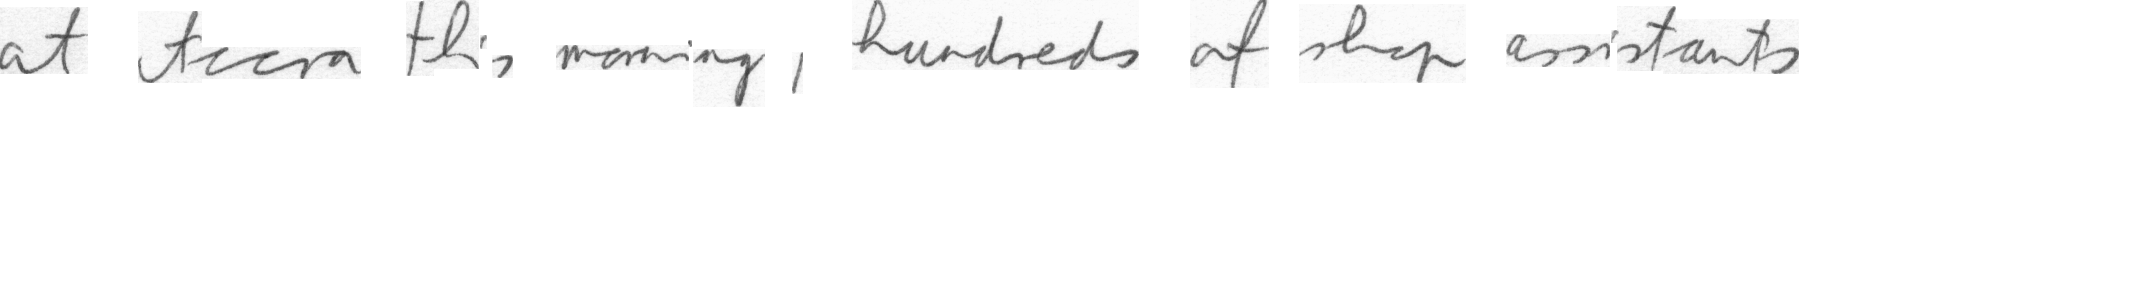 at Accra this morning, hundreds of shop assistants